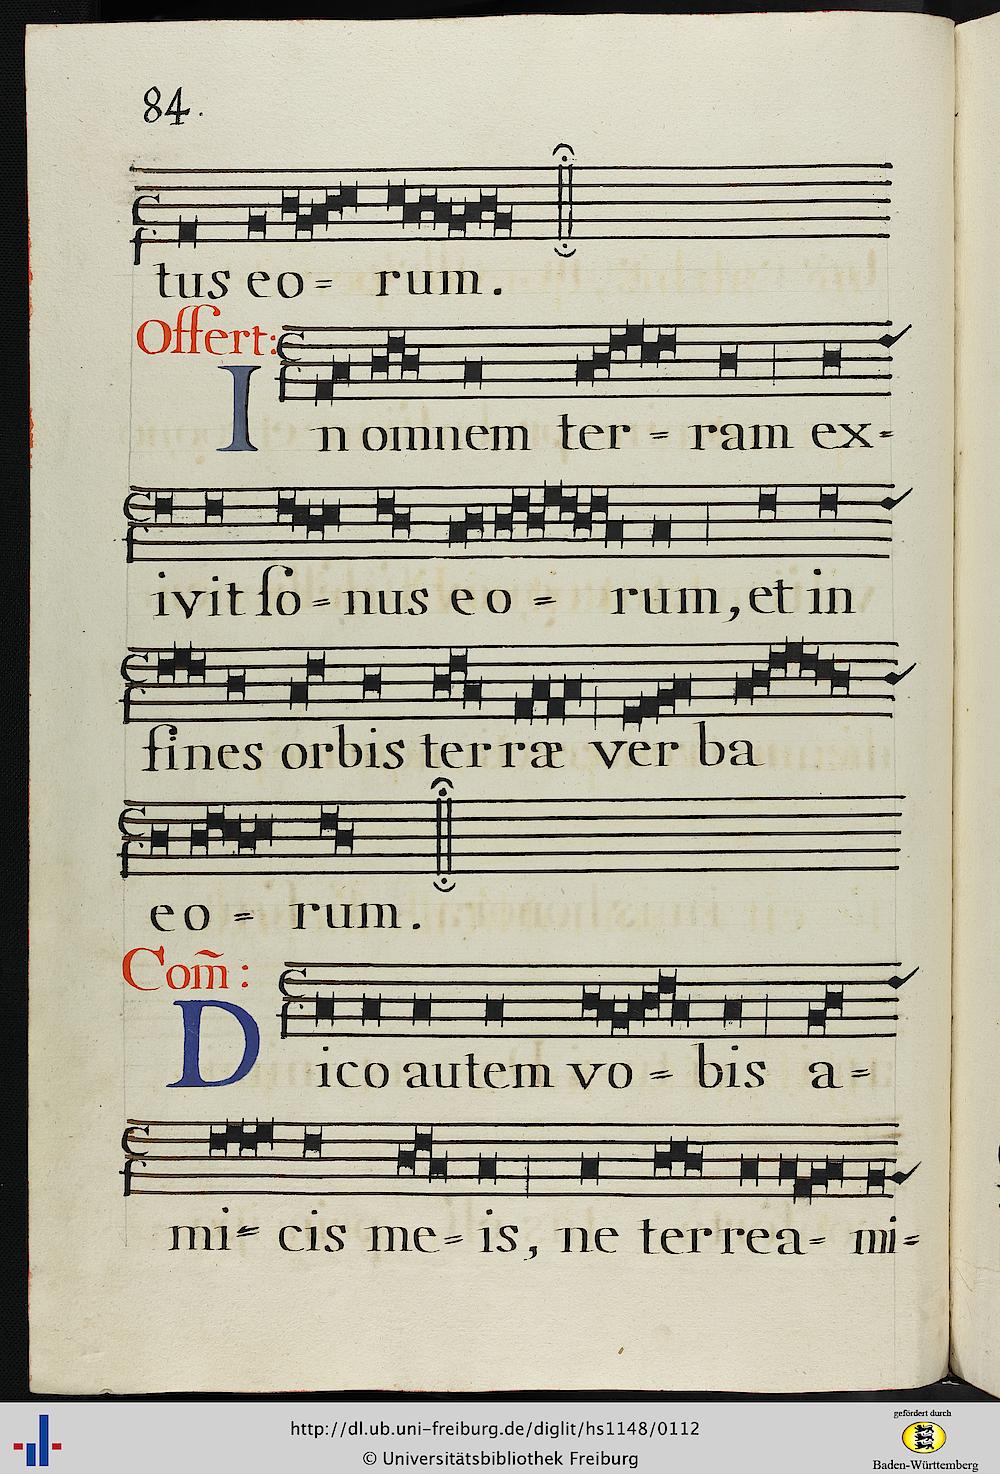 84.
tus eo= rum.
Offert:
In omnem ter= ram ex=
ivit ſo= nus eo= rum, et in
fines orbis terræ verba
eo= rum.
Com̃:
Dico autem vo= bis a=
mi= cis me= is, ne terrea= mi=
http://dl.ub.uni-freiburg.de/diglit/hs1148/0112
© Universitätsbibliothek Freiburg
gefördert durch
Baden-Württemberg